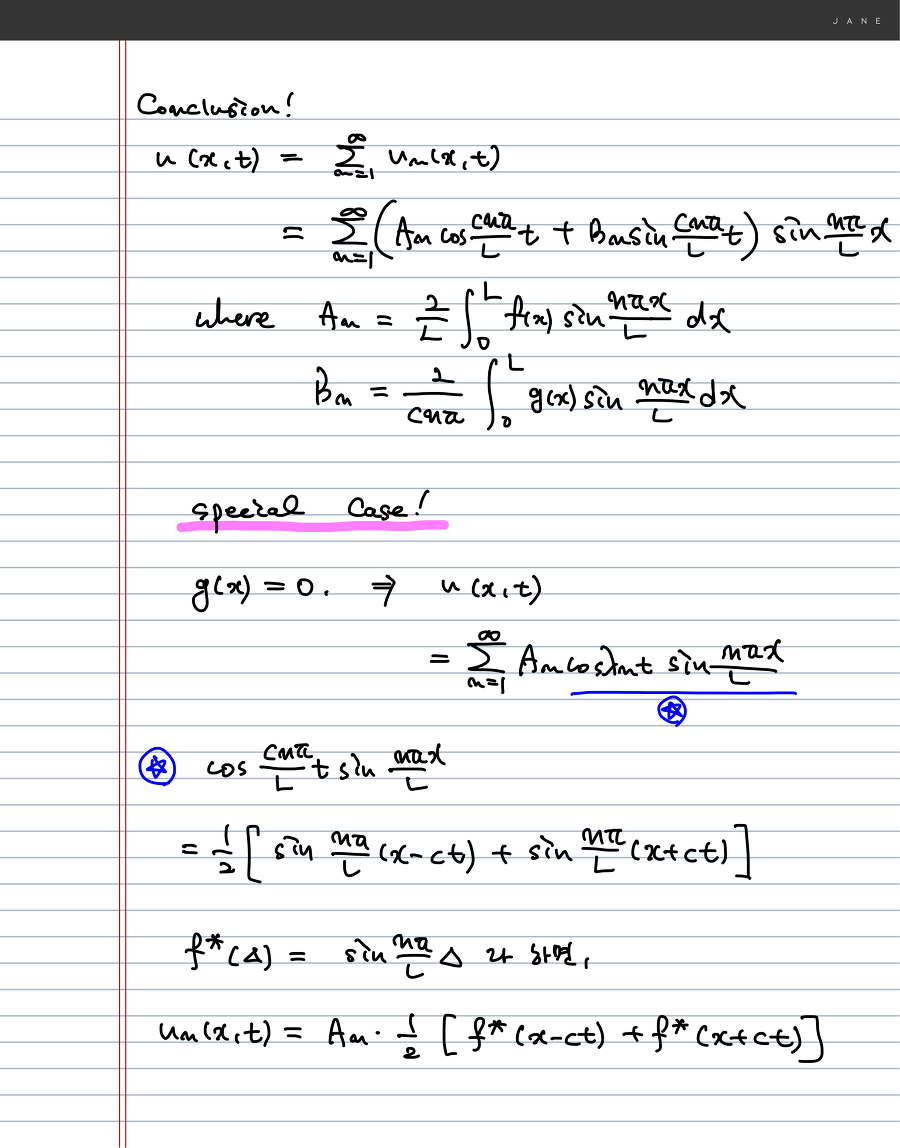 JANE
Conclusion!
u(x,t) = ∑_{n=1}^{∞} u_n(x,t)
= ∑_{n=1}^{∞} (A_n cos \frac{cnπ}{L} t + B_n sin \frac{cnπ}{L} t) sin \frac{nπ}{L} x
where A_n = \frac{2}{L} ∫_0^L f(x) sin \frac{nπx}{L} dx
B_n = \frac{2}{cnπ} ∫_0^L g(x) sin \frac{nπx}{L} dx
special Case!
g(x) = 0. ⇒ u(x,t)
= ∑_{n=1}^{∞} A_n cos λ_n t sin \frac{nπx}{L}
☆
☆ cos \frac{cnπ}{L} t sin \frac{nπx}{L}
= \frac{1}{2} [ sin \frac{nπ}{L} (x-ct) + sin \frac{nπ}{L} (x+ct) ]
f*(△) = sin \frac{nπ}{L} △ 라 하면,
u_n(x,t) = A_n · \frac{1}{2} [ f*(x-ct) + f*(x+ct) ]